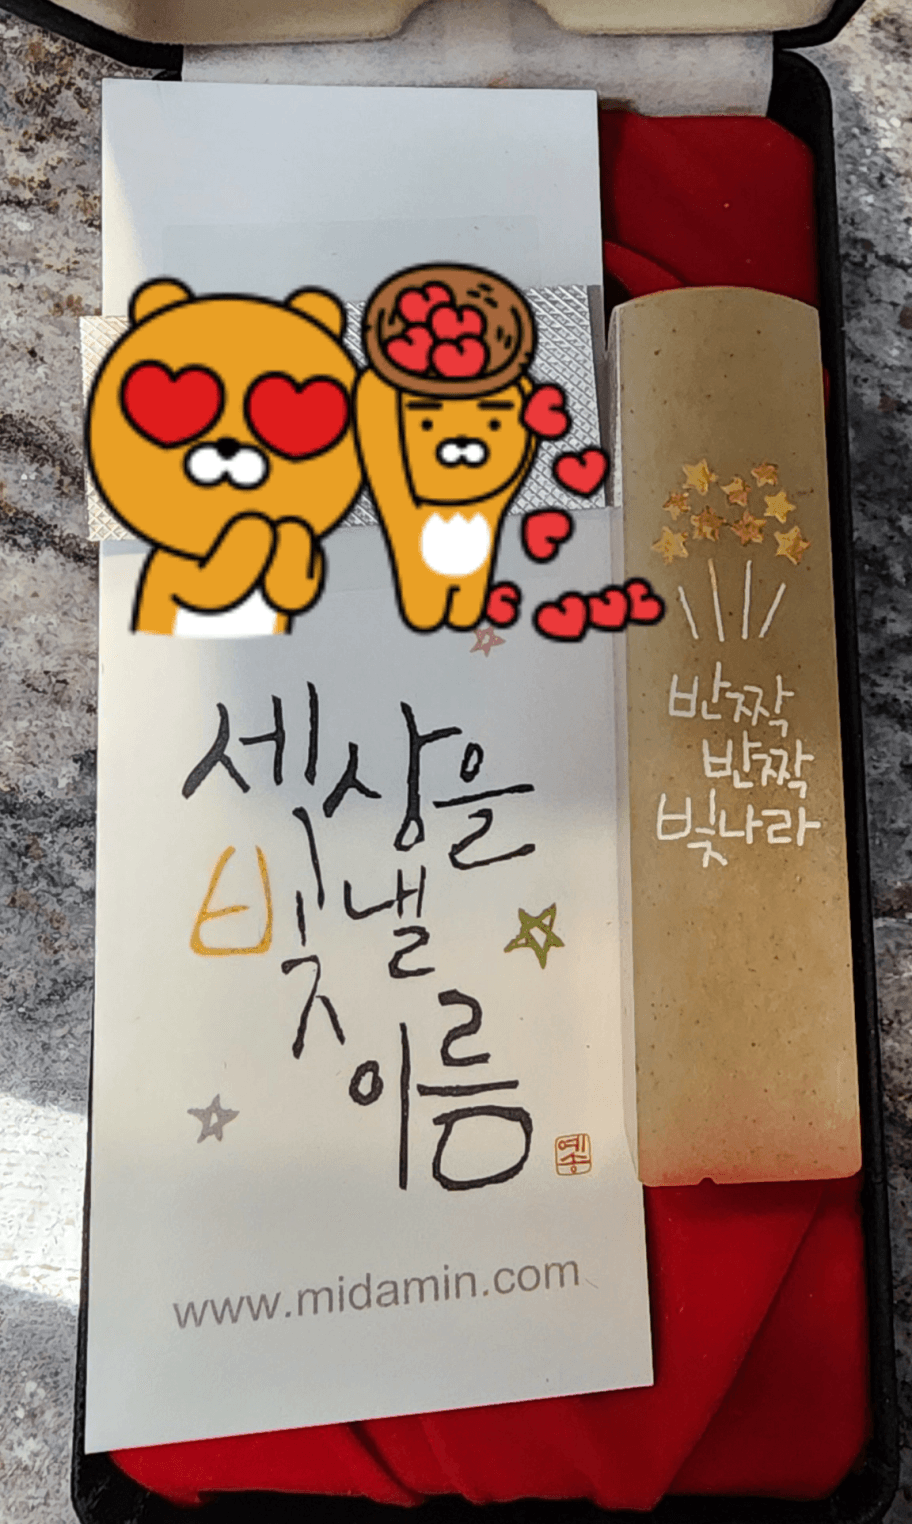 세상을
빛낼
이름
예송
www.midamin.com
반짝
반짝
빛나라